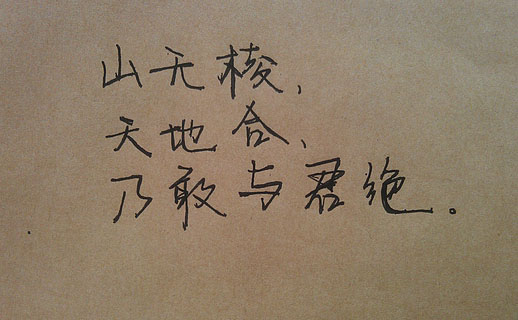 山无棱，
天地合、
乃敢与君绝。